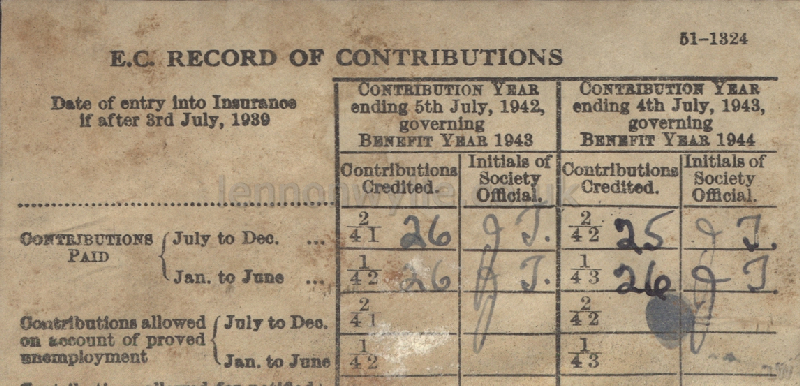 51-1324
E.C. RECORD OF CONTRIBUTIONS
Date of entry into Insurance
if after 3rd July, 1939
CONTRIBUTION YEAR
ending 5th July, 1942,
governing
BENEFIT YEAR 1943
CONTRIBUTION YEAR
ending 4th July, 1943,
governing
BENEFIT YEAR 1944
Contributions
Credited.
Initials of
Society
Official.
Contributions
Credited.
Initials of
Society
Official.
CONTRIBUTIONS
PAID
July to Dec. ...
2/41 26 J T.
2/42 25 J T.
Jan. to June ...
1/42 26 J T.
1/43 26 J T
Contributions allowed
on account of proved
unemployment
July to Dec.
2/41
2/42
Jan. to June
1/42
1/43